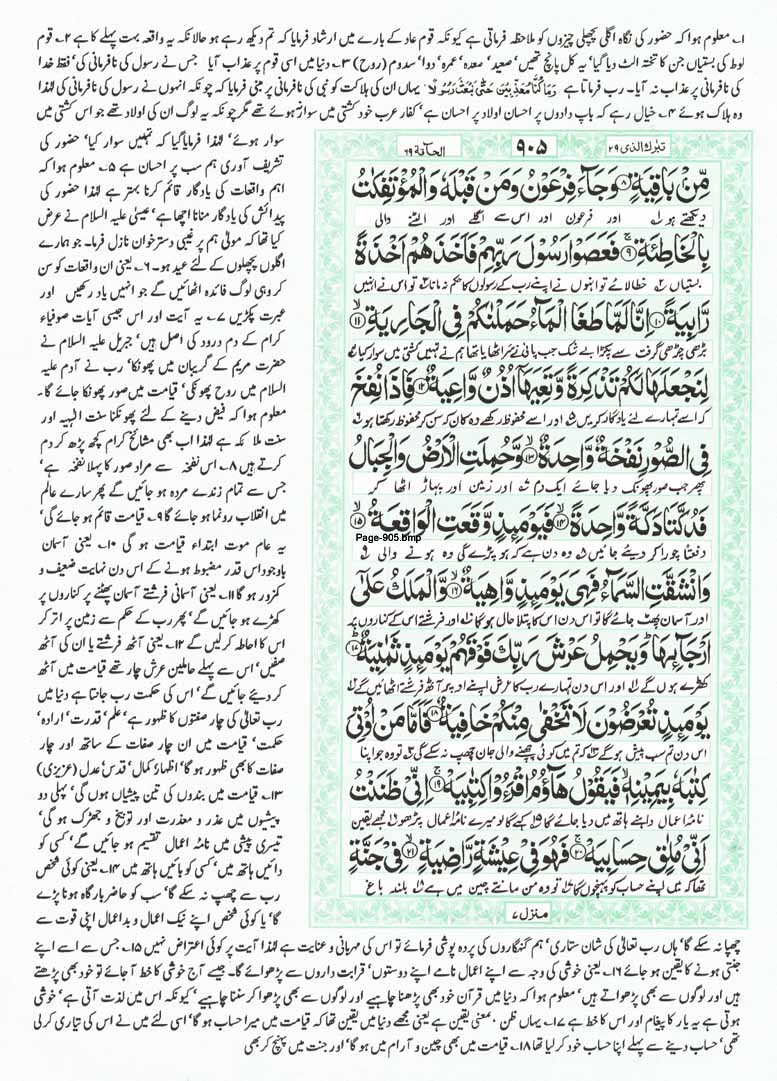 ۱۔ معلوم ہوا کہ حضور کی نگاہ اگلی پچھلی چیزوں کو ملاحظہ فرماتی ہے کیونکہ قوم عاد کے بارے میں ارشاد فرمایا کہ تم دیکھ رہے ہو حالانکہ یہ واقعہ بہت پہلے کا ہے ۲۔ قوم
لوط کی بستیاں جن کا تختہ الٹ دیا گیا' یہ کل پانچ تھیں' صعید' صعدہ' عمرہ' دوا' سدوم (روح) ۳۔ دنیا میں اسی قوم پر عذاب آیا جس نے رسول کی نافرمانی کی' فقط خدا
کی نافرمانی پر عذاب نہ آیا۔ رب فرماتا ہے وَمَا كُنَّا مُعَذِّبِيْنَ حَتّٰى نَبْعَثَ رَسُوْلًا یہاں ان کی ہلاکت کو نبی کی نافرمانی پر مبنی فرمایا کہ چونکہ انہوں نے رسول کی نافرمانی کی لہٰذا
وہ ہلاک ہوئے ۴۔ خیال رہے کہ باپ دادوں پر احسان اولاد پر احسان ہے' کفار عرب خود کشتی میں سوار نہ ہوئے تھے مگر چونکہ یہ لوگ ان کی اولاد تھے جو اس کشتی میں
سوار ہوئے' لہٰذا فرمایا گیا کہ تمہیں سوار کیا' حضور کی
تشریف آوری ہم سب پر احسان ہے ۵۔ معلوم ہوا کہ
اہم واقعات کی یادگار قائم کرنا بہتر ہے لہٰذا حضور کی
پیدائش کی یادگار منانا اچھا ہے' عیسیٰ علیہ السلام نے عرض
کیا تھا کہ مولیٰ ہم پر غیبی دسترخوان نازل فرما۔ جو ہمارے
اگلوں پچھلوں کے لئے عید ہو۔ ۶۔ یعنی ان واقعات کو سن
کر وہی لوگ فائدہ اٹھائیں گے جو انہیں یاد رکھیں اور
عبرت پکڑیں ۷۔ یہ آیت اور اس جیسی آیات صوفیاء
کرام کے دم درود کی اصل ہیں' جبریل علیہ السلام نے
حضرت مریم کے گریبان میں پھونکا' رب نے آدم علیہ
السلام میں روح پھونکی' قیامت میں صور پھونکا جائے گا۔
معلوم ہوا کہ فیض دینے کے لئے پھونکنا سنت الٰہیہ اور
سنت ملائکہ ہے لہٰذا اب بھی مشائخ کرام کچھ پڑھ کر دم
کرتے ہیں ۸۔ اس نفخہ سے مراد صور کا پہلا نفخہ ہے'
جس سے تمام زندے مردہ ہو جائیں گے پھر سارے عالم
میں انقلاب رونما ہو جائے گا ۹۔ قیامت قائم ہو جائے گی'
یہ عام موت ابتداء قیامت ہو گی ۱۰۔ یعنی آسمان
باوجود اس قدر مضبوط ہونے کے اس دن نہایت ضعیف و
کمزور ہو گا ۱۱۔ یعنی آسمانی فرشتے آسمان پھٹنے پر کناروں پر
کھڑے ہو جائیں گے' پھر رب کے حکم سے زمین پر اتر کر
اس کا احاطہ کر لیں گے ۱۲۔ یعنی آٹھ فرشتے یا ان کی آٹھ
صفیں' اس سے پہلے حاملین عرش چار تھے قیامت میں آٹھ
کر دیئے جائیں گے' اس کی حکمت رب جانتا ہے دنیا میں
رب تعالیٰ کی چار صفتوں کا ظہور ہے' علم' قدرت' ارادہ'
حکمت' قیامت میں ان چار صفات کے ساتھ اور چار
صفات کا بھی ظہور ہو گا' اظہار' کمال' قدس' عدل (عزیزی)
۱۳۔ قیامت میں بندوں کی تین پیشیاں ہوں گی' پہلی دو
پیشیوں میں عذر و معذرت اور توبیخ و جھڑک ہو گی'
تیسری پیشی میں نامہ اعمال تقسیم ہو جائیں گے' کسی کو
دائیں ہاتھ میں' کسی کو بائیں ہاتھ میں ۱۴۔ یعنی کوئی شخص
رب سے چھپ نہ سکے گا' سب کو حاضر بارگاہ ہونا پڑے
گا' یا کوئی شخص اپنے نیک اعمال و بد اعمال اپنی قوت سے
تبٰرك الذی ۲۹
۹۰۵
الحاقة ۶۹
مِّنْۢ بَاقِيَةٍ ۸ وَجَآءَ فِرْعَوْنُ وَمَنْ قَبْلَهٗ وَالْمُؤْتَفِكٰتُ
دیکھتے ہو اور فرعون اور اس سے اگلے اور الٹنے والی
بِالْخَاطِئَةِ ۹ فَعَصَوْا رَسُوْلَ رَبِّهِمْ فَاَخَذَهُمْ اَخْذَةً
بستیاں خطا لائے تو انہوں نے اپنے رب کے رسولوں کا حکم نہ مانا تو اس نے انہیں
رَّابِيَةً ۱۰ اِنَّا لَمَّا طَغَا الْمَآءُ حَمَلْنٰكُمْ فِی الْجَارِيَةِ ۱۱
بڑھی چڑھی گرفت سے پکڑا بے شک جب پانی نے سر اٹھایا تھا ہم نے تمہیں کشتی میں سوار کیا
لِنَجْعَلَهَا لَكُمْ تَذْكِرَةً وَّتَعِيَهَآ اُذُنٌ وَّاعِيَةٌ ۱۲ فَاِذَا نُفِخَ
کہ اسے تمہارے لئے یادگار کریں اور اسے محفوظ رکھے وہ کان کہ سن کر محفوظ رکھتا ہو
فِی الصُّوْرِ نَفْخَةٌ وَّاحِدَةٌ ۱۳ وَّحُمِلَتِ الْاَرْضُ وَالْجِبَالُ
پھر جب صور پھونک دیا جائے ایک دم اور زمین اور پہاڑ اٹھا کر
فَدُكَّتَا دَكَّةً وَّاحِدَةً ۱۴ فَيَوْمَئِذٍ وَّقَعَتِ الْوَاقِعَةُ ۱۵
دفعتاً چورا کر دیئے جائیں وہ دن ہے کہ ہو پڑے گی وہ ہونے والی
Page-905.bmp
وَانْشَقَّتِ السَّمَآءُ فَهِیَ يَوْمَئِذٍ وَّاهِيَةٌ ۱۶ وَّالْمَلَكُ عَلٰٓی
اور آسمان پھٹ جائے گا تو اس دن اس کا پتلا حال ہو گا اور فرشتے اس کے کناروں پر
اَرْجَآئِهَا وَيَحْمِلُ عَرْشَ رَبِّكَ فَوْقَهُمْ يَوْمَئِذٍ ثَمٰنِيَةٌ ۱۷
کھڑے ہوں گے اور اس دن تمہارے رب کا عرش اپنے اوپر آٹھ فرشتے اٹھائیں گے
يَوْمَئِذٍ تُعْرَضُوْنَ لَا تَخْفٰی مِنْكُمْ خَافِيَةٌ ۱۸ فَاَمَّا مَنْ اُوْتِیَ
اس دن تم سب پیش ہو گے کہ تم میں کوئی چھپنے والی جان چھپ نہ سکے گی تو وہ جو اپنا
كِتٰبَهٗ بِيَمِيْنِهٖ فَيَقُوْلُ هَآؤُمُ اقْرَءُوْا كِتٰبِيَهْ ۱۹ اِنِّیْ ظَنَنْتُ
نامۂ اعمال داہنے ہاتھ میں دیا جائے گا کہے گا لو میرے نامۂ اعمال پڑھو مجھے یقین
اَنِّیْ مُلٰقٍ حِسَابِيَهْ ۲۰ فَهُوَ فِیْ عِيْشَةٍ رَّاضِيَةٍ ۲۱ فِیْ جَنَّةٍ
تھا کہ میں اپنے حساب کو پہنچوں گا تو وہ من مانتے چین میں ہے بلند باغ
منزل ۷
چھپا نہ سکے گا' ہاں رب تعالیٰ کی شان ستاری' ہم گنہگاروں کی پردہ پوشی فرمائے تو اس کی مہربانی و عنایت ہے لہٰذا آیت پر کوئی اعتراض نہیں ۱۵۔ جس سے اسے اپنے
جنتی ہونے کا یقین ہو جائے ۱۶۔ یعنی خوشی کی وجہ سے اپنے اعمال نامے اپنے دوستوں' قرابت داروں سے پڑھوائے گا۔ جیسے آج خوشی کا خط آ جائے تو خود بھی پڑھتے
ہیں اور لوگوں سے بھی پڑھواتے ہیں' معلوم ہوا کہ دنیا میں قرآن خود بھی پڑھنا چاہیے اور لوگوں سے بھی پڑھوا کر سننا چاہیے' کیونکہ اس میں لذت آتی ہے' خوشی
ہوتی ہے یہ یار کا پیغام اور اس کا خط ہے ۱۷۔ یہاں ظن بمعنی یقین ہے یعنی مجھے دنیا میں یقین تھا کہ قیامت میں میرا حساب ہو گا' اسی لئے میں نے اس کی تیاری کر لی
تھی' حساب دینے سے پہلے اپنا حساب خود کر لیا تھا ۱۸۔ قیامت میں بھی چین و آرام میں ہو گا' اور جنت میں پہنچ کر بھی